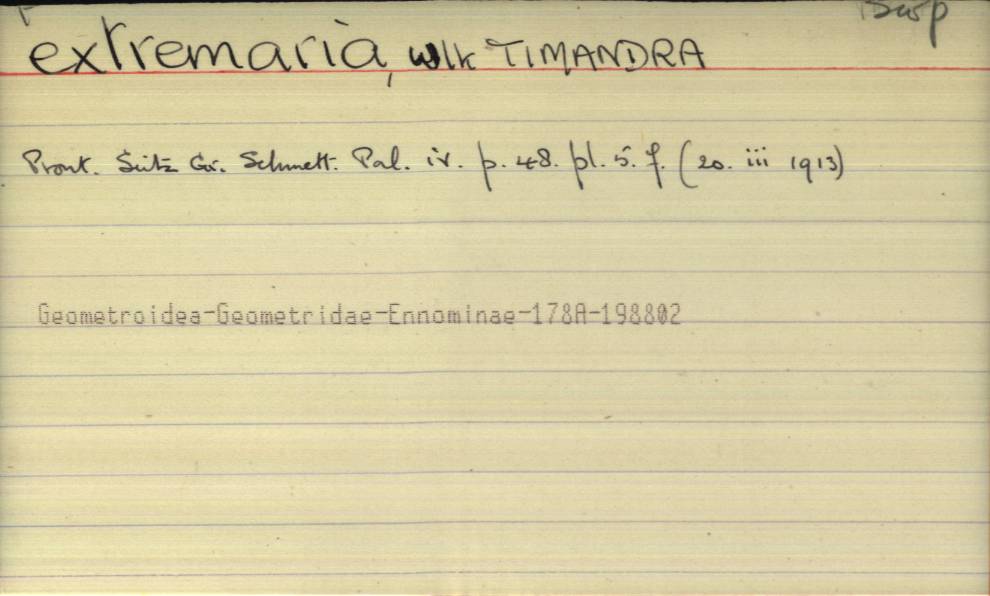 extremaria, wlk TIMANDRA
Prout. Seitz Gr. Schmett. Pal. iv. p. 48. pl. 5. f. (20. iii 1913)
Geometroidea-Geometridae-Ennominae-178A-198802